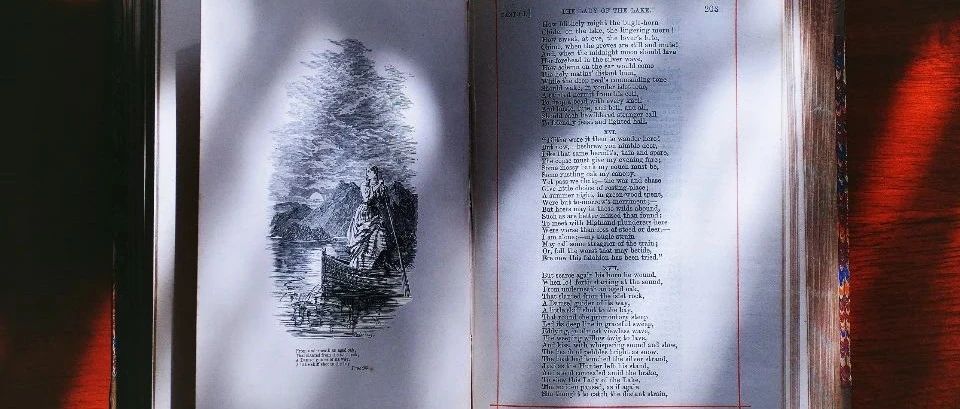 From underneath an aged oak,
CANTO I.] THE LADY OF THE LAKE. 203
How blithely might the bugle-horn
Chide, on the lake, the lingering morn!
How sweet, at eve, the lover's lute,
Chime, when the groves are still and mute!
And, when the midnight moon should lave
Her forehead in the silver wave,
How solemn on the ear would come
The holy matins' distant hum,
While the deep peal's commanding tone
Should wake, in yonder islet lone,
A sainted hermit from his cell,
To drop a bead with every knell
And bugle, lute, and bell, and all,
Should each bewildered stranger call
To friendly feast and lighted hall.
XVI.
were it then to wander here!
But now,—beshrew yon nimble deer,
Like that same hermit's, thin and spare,
The copse must give my evening fare;
Some mossy bank my couch must be,
Some rustling oak my canopy.
Yet pass we that;—the war and chase
Give little choice of resting-place;—
A summer night, in greenwood spent,
Were but to-morrow's merriment;—
But hosts may in these wilds abound,
Such as are better missed than found;
To meet with Highland plunderers here
Were worse than loss of steed or deer.—
I am alone;—my bugle strain
May call some straggler of the train;
Or, fall the worst that may betide,
Ere now this falchion has been tried."
XVII.
But scarce again his horn he wound,
When lo! forth starting at the sound,
From underneath an aged oak,
That slanted from the islet rock,
A Damsel guider of its way,
A little skiff shot to the bay,
That round the promontory steep
Led its deep line in graceful sweep,
Eddying, in almost viewless wave,
The weeping willow twig to lave,
And kiss, with whispering sound and slow,
The beach of pebbles bright as snow.
The boat had touched the silver strand,
Just as the Hunter left his stand,
And stood concealed amid the brake,
To view this Lady of the Lake.
The maiden paused, as if again
She thought to catch the distant strain,